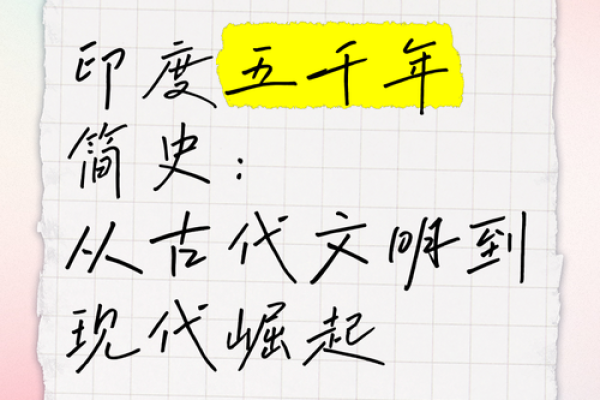 印度五千年
简史：
从古代文明到
现代崛起